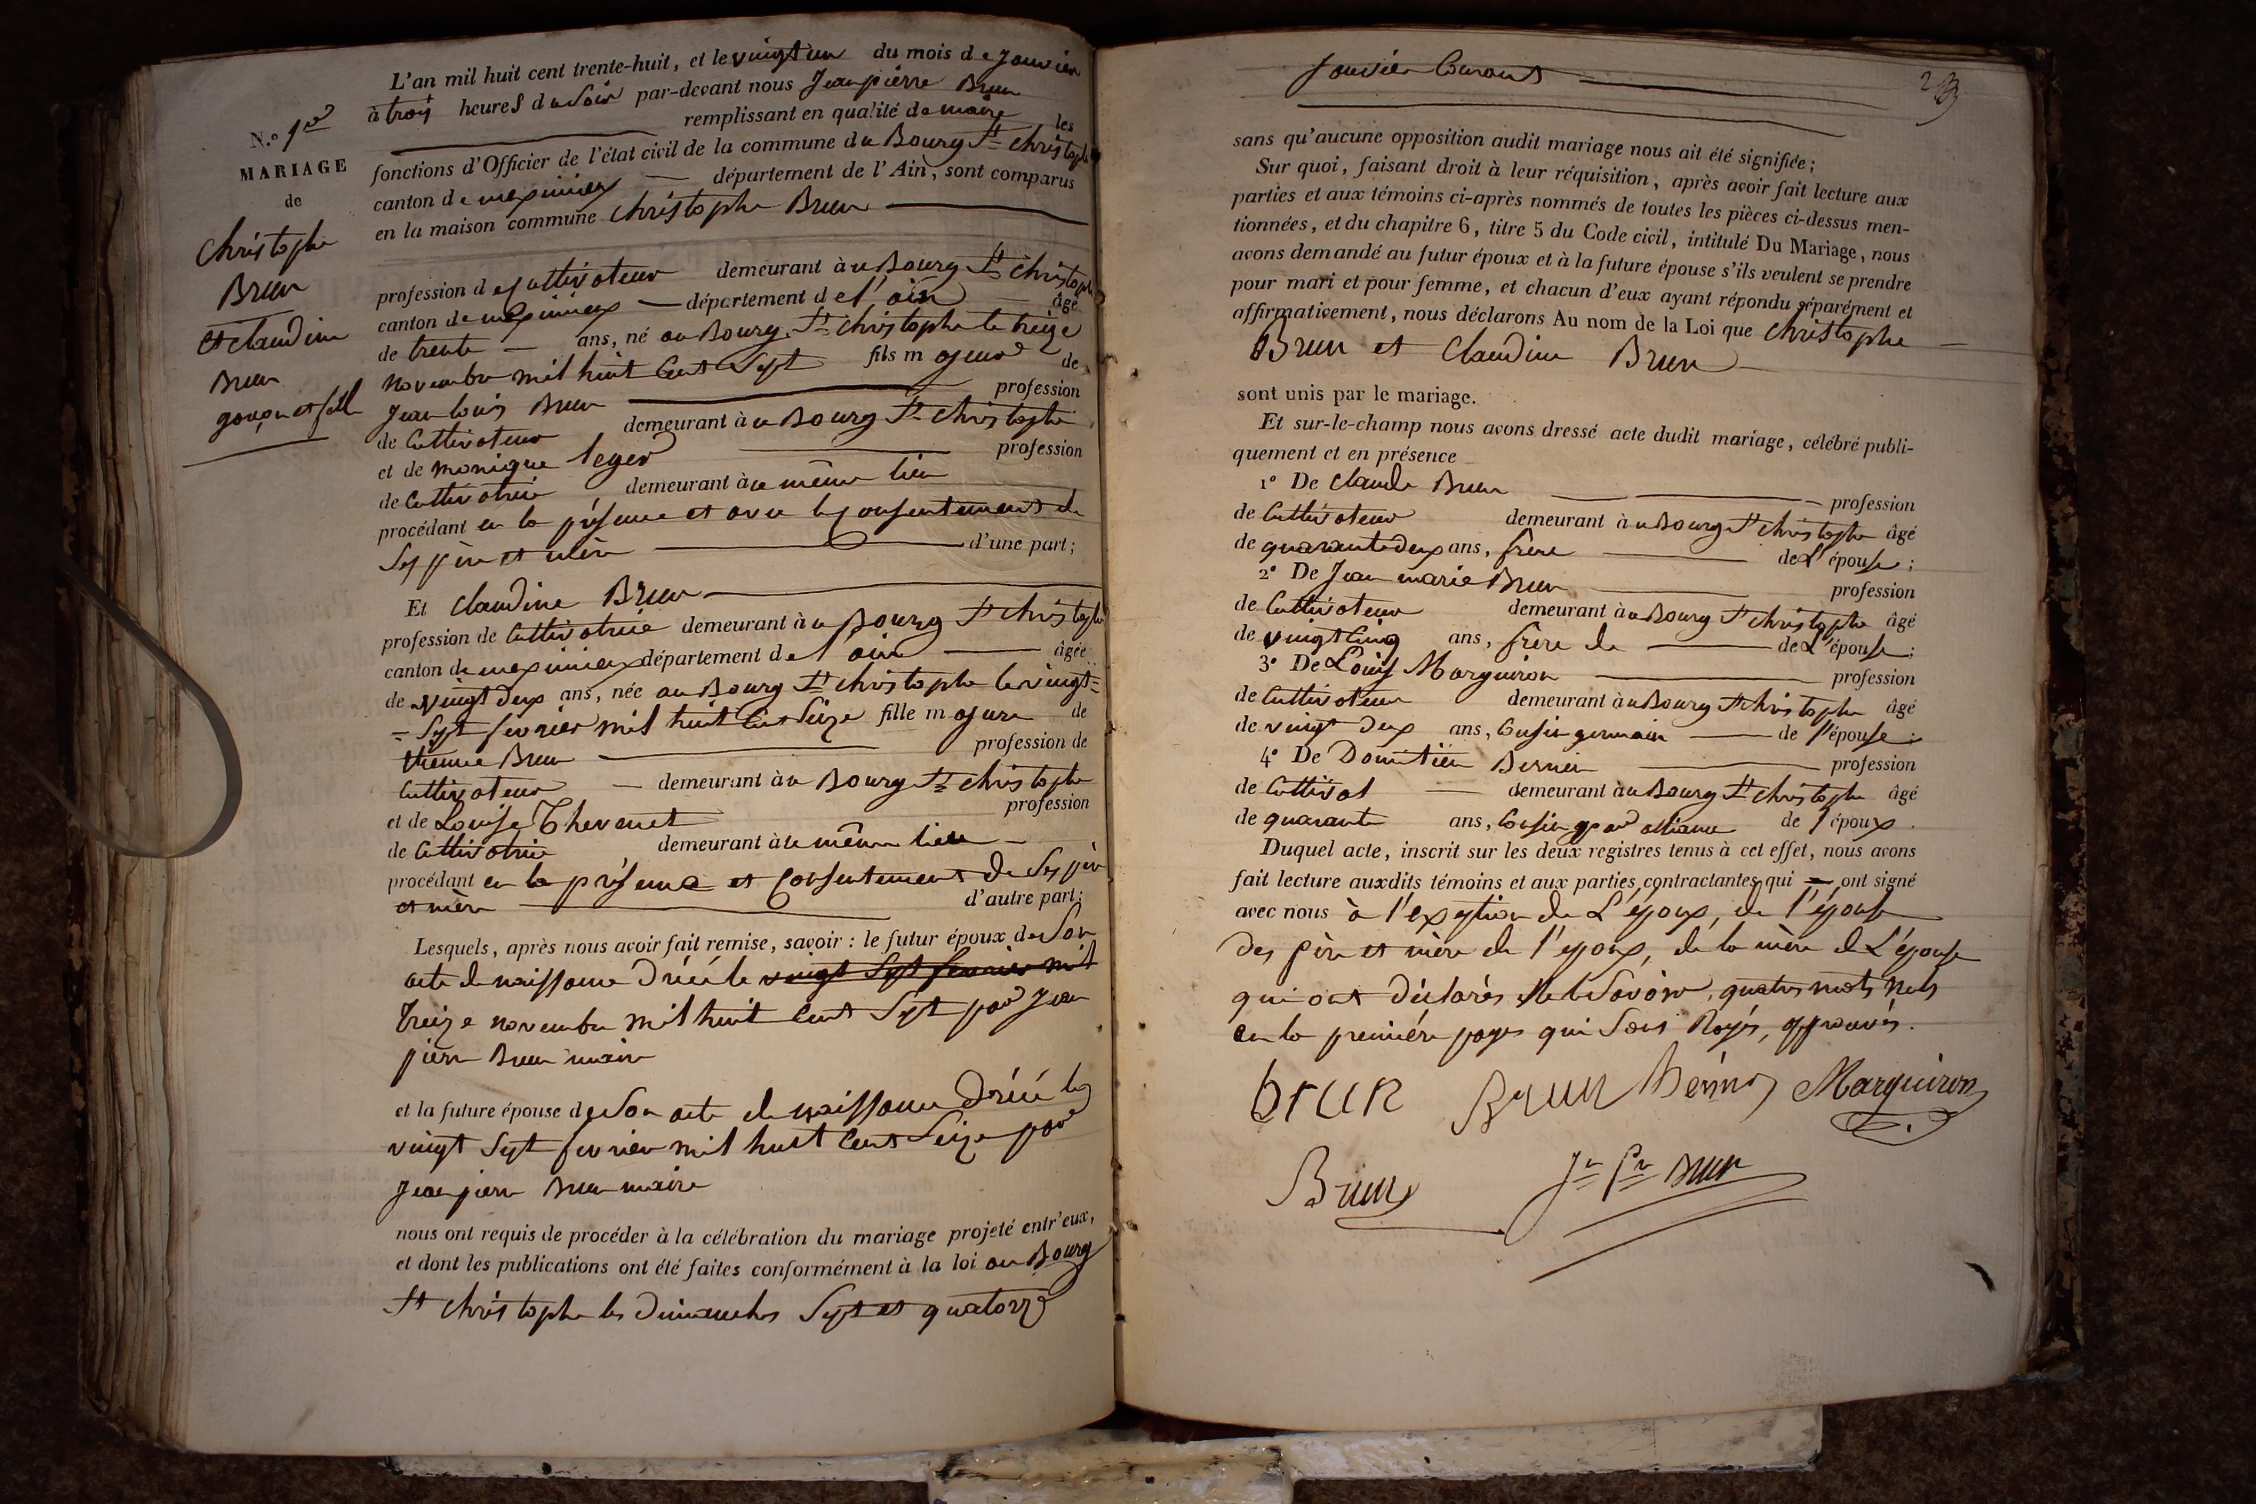 L'an mil huit cent trente-huit, et le vingt un du mois de janvier
à trois heures du soir par-devant nous Jean pierre Brun
remplissant en qualité de maire les
N.º 1er
fonctions d'Officier de l'état civil de la commune du Bourg St christophe
MARIAGE
canton de meximieux département de l'Ain, sont comparus
de
en la maison commune christophe Brun
Christophe
Brun
et claudine
Brun
garçon et fille
profession de Cultivateur demeurant à u Bourg St christophe
canton de meximieux département de l'ain âgé
de trente ans, né au Bourg St christophe le treize
novembre mil huit Cent Sept fils majeur de
jean louis Brun profession
de Cultivateur demeurant à u Bourg St christophe
et de monique leger profession
de Cultivatrice demeurant à u même lieu
procédant en la présence et avec le Consentement de
Ses père et mère d'une part;
Et claudine Brun
profession de Cultivatrice demeurant à u Bourg St christophe
canton de meximieux département de l'ain âgée
de vingt deux ans, née au Bourg St christophe le vingt=
= Sept fevrier mil huit Cent Seize fille majeure de
etienne Brun profession de
Cultivateur demeurant à u Bourg St christophe
et de Louise Thevenet profession
de Cultivatrice demeurant à u même lieu
procédant en la présence et Consentement de Ses père
et mère d'autre part;
Lesquels, après nous avoir fait remise, savoir: le futur époux de Son
acte de naissance Dréssé le vingt Sept fevrier mil
treize novembre mil huit Cent Sept par jean
pierre Brun maire
et la future épouse de Son acte de naissance Dréssé le
vingt Sept fevrier mil huit Cent Seize par
jean pierre Brun maire
nous ont requis de procéder à la célébration du mariage projeté entr'eux,
et dont les publications ont été faites conformément à la loi au Bourg
St christophe les Dimanches Sept et quatorze
janvier Courant
sans qu'aucune opposition audit mariage nous ait été signifiée;
Sur quoi, faisant droit à leur réquisition, après avoir fait lecture aux
parties et aux témoins ci-après nommés de toutes les pièces ci-dessus men-
tionnées, et du chapitre 6, titre 5 du Code civil, intitulé Du Mariage, nous
avons demandé au futur époux et à la future épouse s'ils veulent se prendre
pour mari et pour femme, et chacun d'eux ayant répondu séparément et
affirmativement, nous déclarons Au nom de la Loi que christophe
Brun et Claudine Brun
sont unis par le mariage.
Et sur-le-champ nous avons dressé acte dudit mariage, célébré publi-
quement et en présence
1º De claude Brun profession
de Cultivateur demeurant à u Bourg St christophe âgé
de quarante deux ans, frère de L'épouse;
2º De Jean marie Brun profession
de Cultivateur demeurant à u Bourg St christophe âgé
de vingt Cinq ans, frère de de L'épouse;
3º De Louis Marguiron profession
de Cultivateur demeurant à u Bourg St christophe âgé
de vingt deux ans, Cousin germain de l'épouse;
4º De Domitien profession
de Cultivat demeurant à u Bourg St christophe âgé
de quarante ans, Cousin par alliance de l'époux.
Duquel acte, inscrit sur les deux registres tenus à cet effet, nous avons
fait lecture auxdits témoins et aux parties contractantes qui ont signé
avec nous à l'exception de L'époux, de l'épouse
des père et mère de l'époux, de la mère de L'épouse
qui ont déclarés ne le Savoir, quatre mots nuls
en la première page qui Sont Rayés, approuvés.
brun Brun Marguiron
Brun Jn Pre Brun